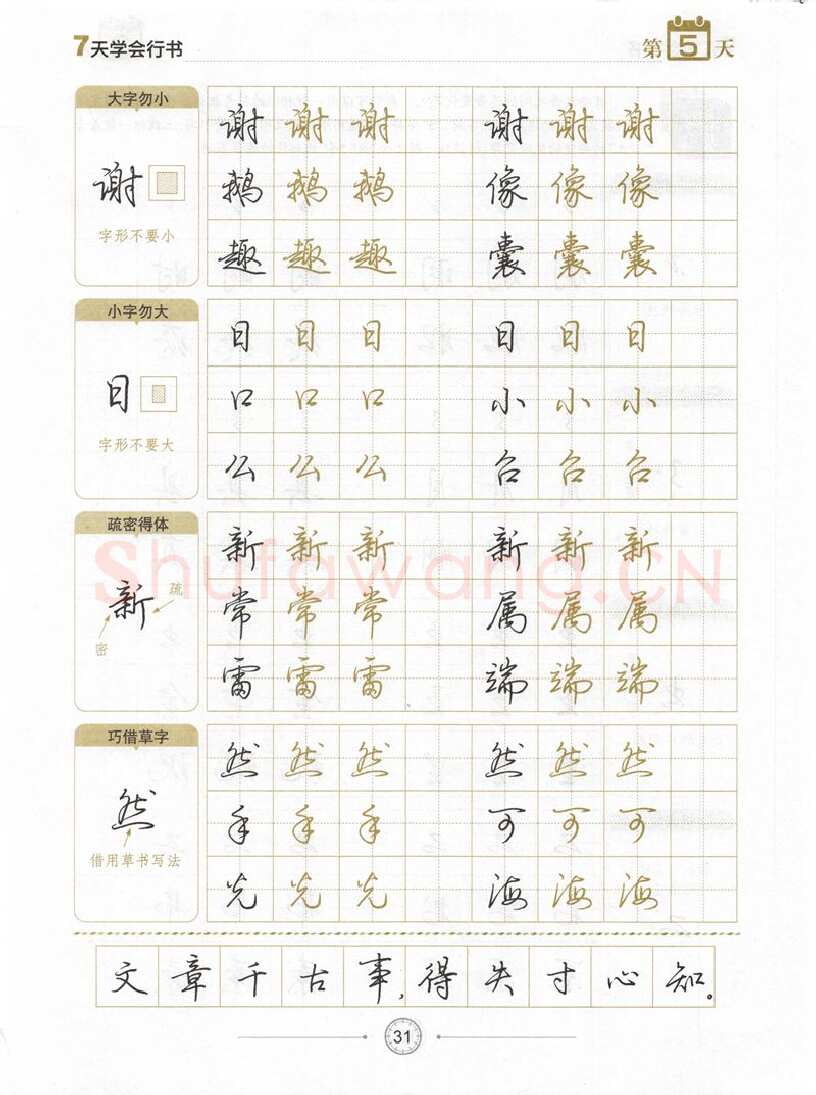 7天学会行书 第5天
大字勿小
谢
字形不要小
谢谢谢 谢谢谢
鹅鹅鹅 像像像
趣趣趣 囊囊囊
小字勿大
日
字形不要大
日日日 日日日
口口口 小小小
公公公 台台台
疏密得体
新
疏
密
新新新 新新新
常常常 属属属
雷雷雷 端端端
巧借草字
然
借用草书写法
然然然 然然然
手手手 可可可
光光光 海海海
文章千古事，得失寸心知。
31
Shufawang.CN